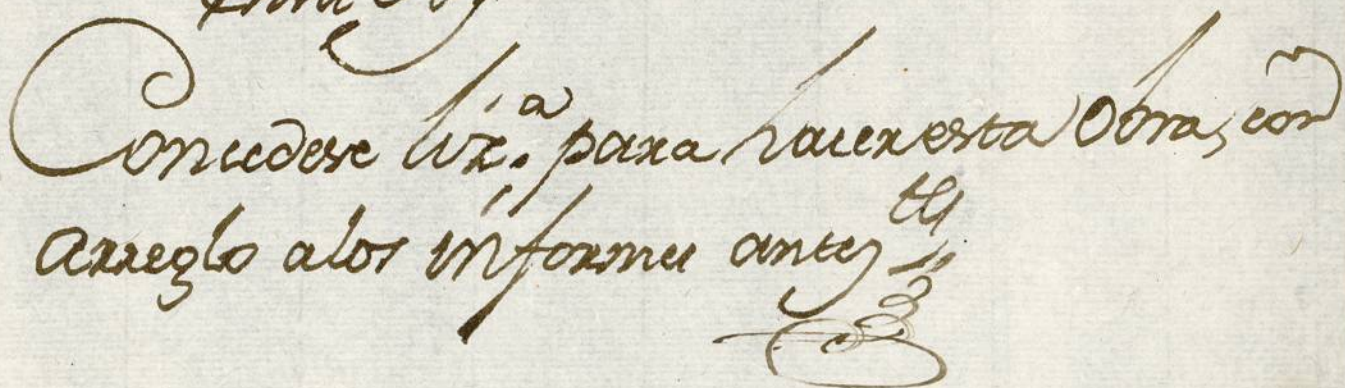 Concedese liz.ª para hacer esta Obra, con
arreglo a los informes antez.tes